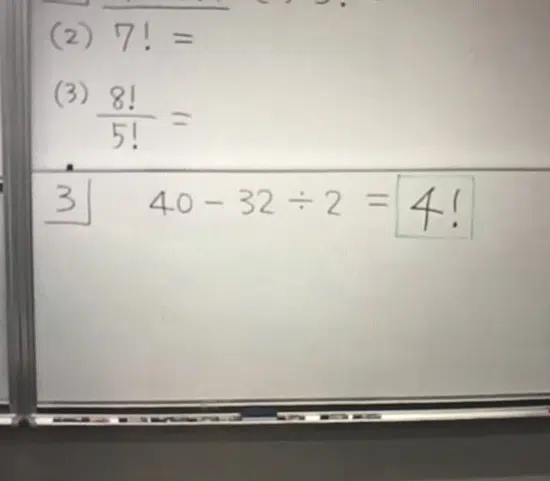 (2) 7! =
(3) 8!/5! =
3 40 - 32 ÷ 2 = 4!